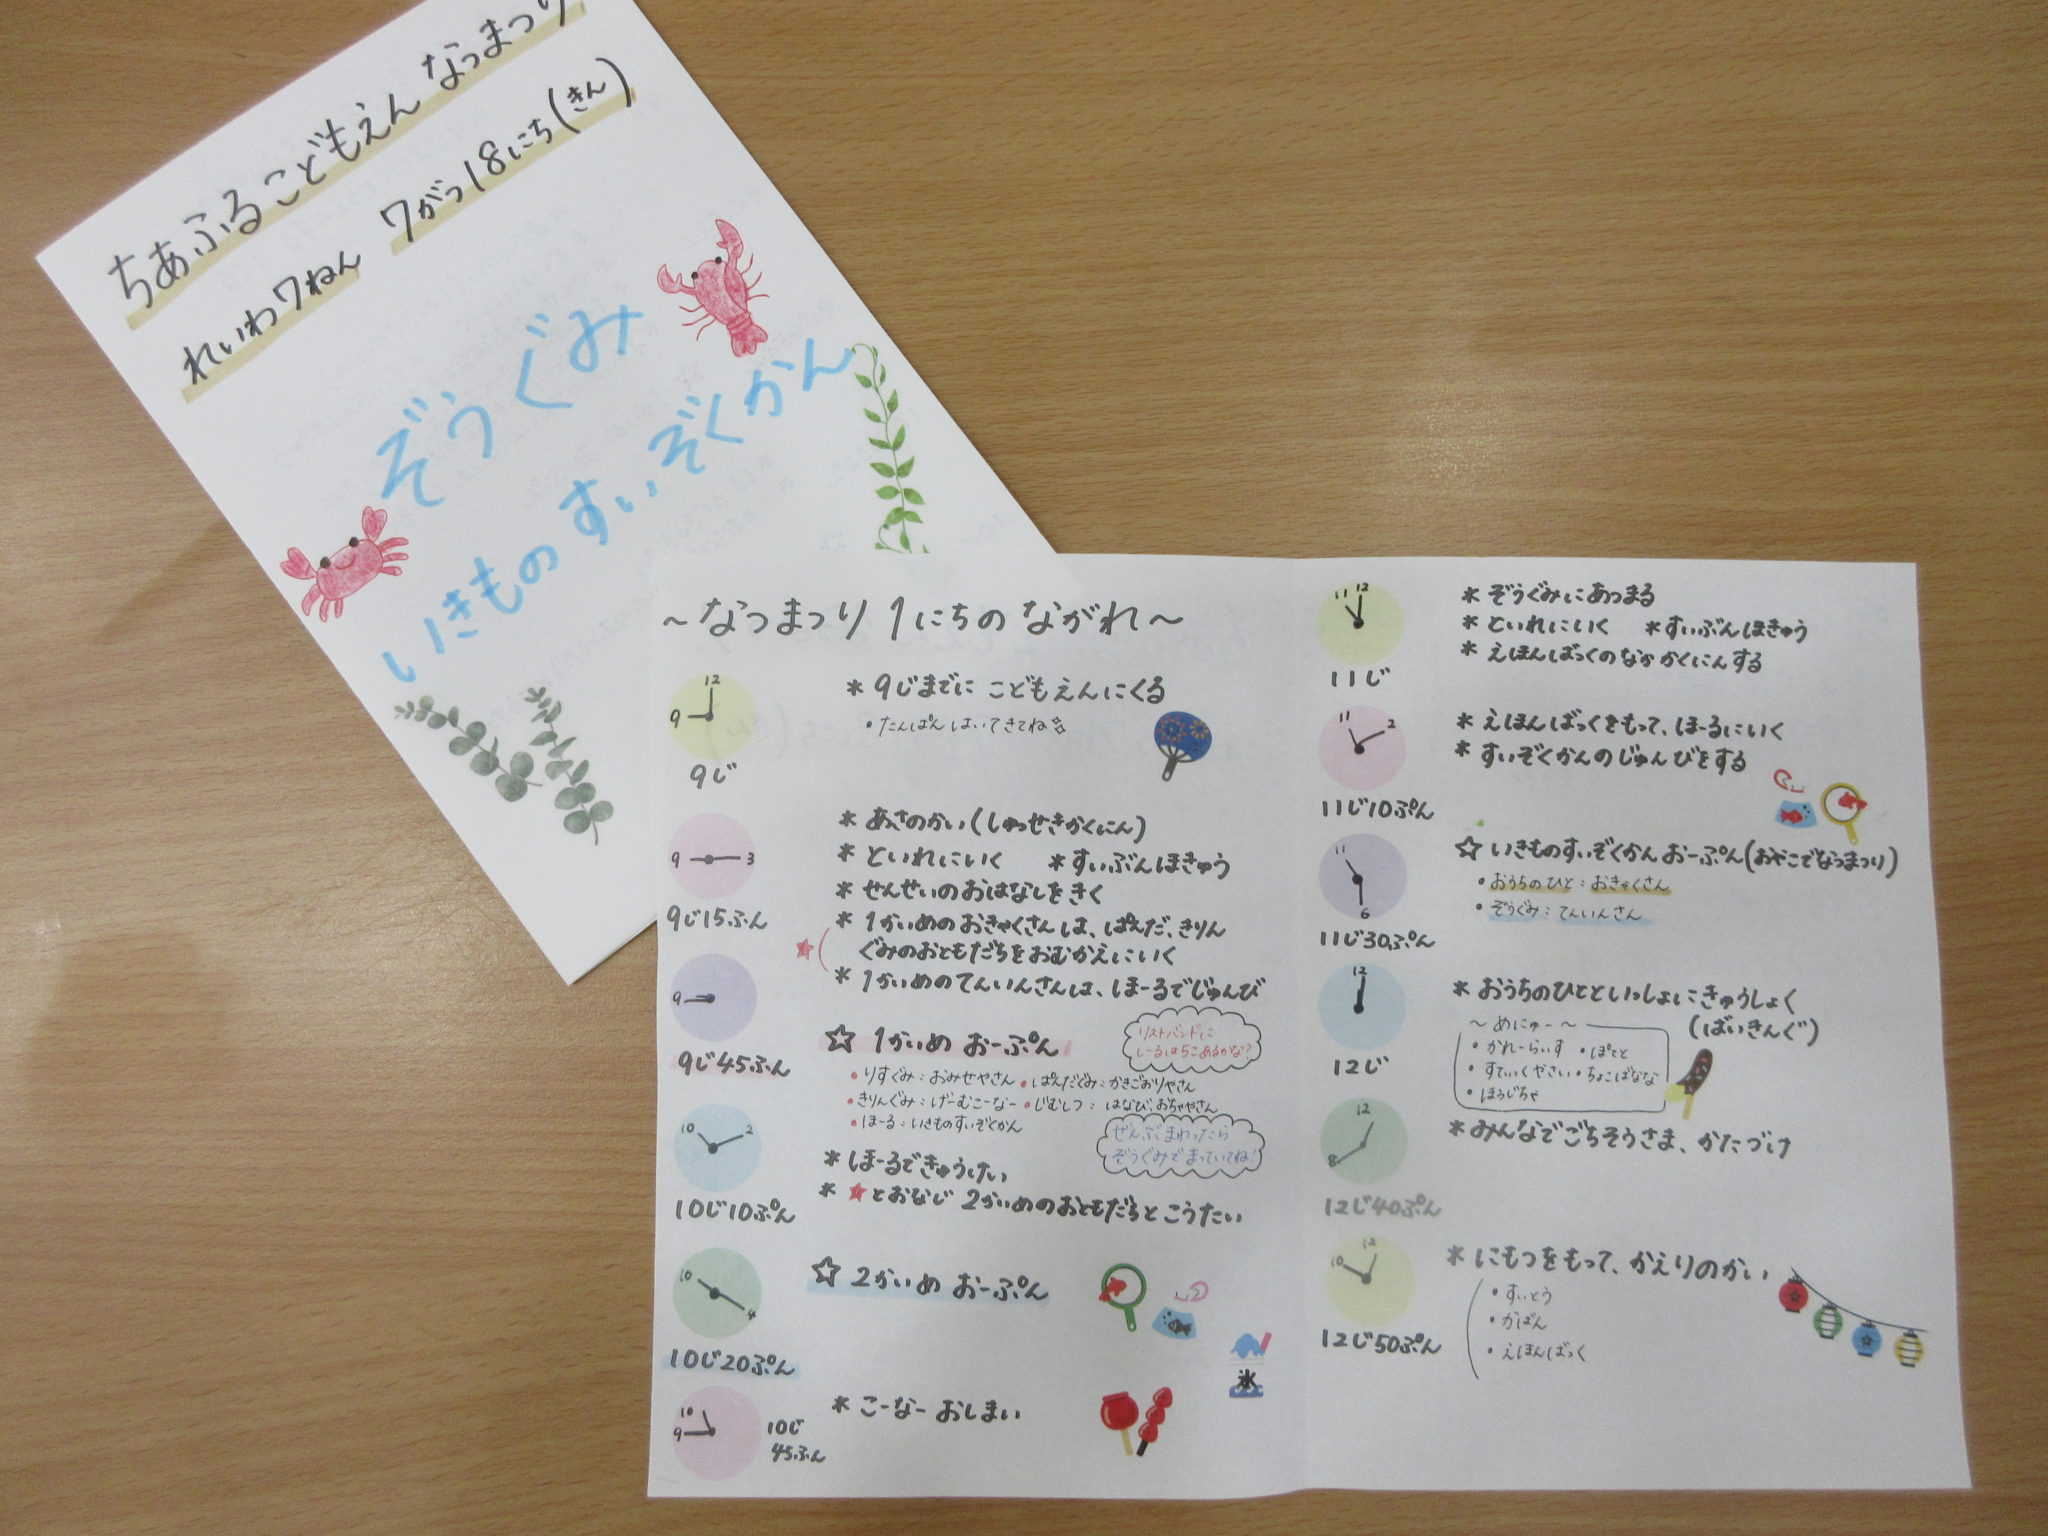 ちあふるこどもえん なつまつり
れいわ7ねん 7がつ18にち(きん)
ぞうぐみ
いきものすいぞくかん
～なつまつり 1にちの ながれ～
12
9
9じ
＊9じまでに こどもえんにくる
・たんぱん はいてきてね☆
9
3
9じ15ふん
＊あさのかい(しゅっせきかくにん)
＊といれにいく ＊すいぶんほきゅう
＊せんせいのおはなしをきく
★
＊1かいめのおきゃくさんは、ぱんだ、きりん
ぐみのおともだちをおむかえにいく
＊1かいめのてんいんさんは、ほーるでじゅんび
9
9じ45ふん
☆1かいめ おーぷん
リストバンドに
しーるは5こあるかな?
・りすぐみ：おみせやさん ・ぱんだぐみ：かきごおりやさん
・きりんぐみ：げーむこーなー ・じむしつ：はなび、おちゃやさん
・ほーる：いきものすいぞくかん
ぜんぶまわったら
ぞうぐみでまっていてね!
10
2
10じ10ぷん
＊ほーるできゅうけい
＊★とおなじ 2かいめのおともだちと こうたい
10
4
10じ20ぷん
☆2かいめ おーぷん
氷
10
9
10じ
45ふん
＊こーなー おしまい
11 12
11じ
＊ぞうぐみにあつまる
＊といれにいく ＊すいぶんほきゅう
＊えほんばっくのなか かくにんする
11
2
11じ10ぷん
＊えほんばっくをもって、ほーるにいく
＊すいぞくかんのじゅんびをする
11
6
11じ30ぷん
☆いきものすいぞくかん おーぷん(おやこでなつまつり)
・おうちのひと：おきゃくさん
・ぞうぐみ：てんいんさん
12
12じ
＊おうちのひとといっしょにきゅうしょく
(ばいきんぐ)
～めにゅー～
・かれーらいす ・ぽてと
・すてぃっくやさい ・ちょこばなな
・ほうじちゃ
12
8
12じ40ぷん
＊みんなでごちそうさま、かたづけ
10
12
12じ50ぷん
＊にもつをもって、かえりのかい
・すいとう
・かばん
・えほんばっく